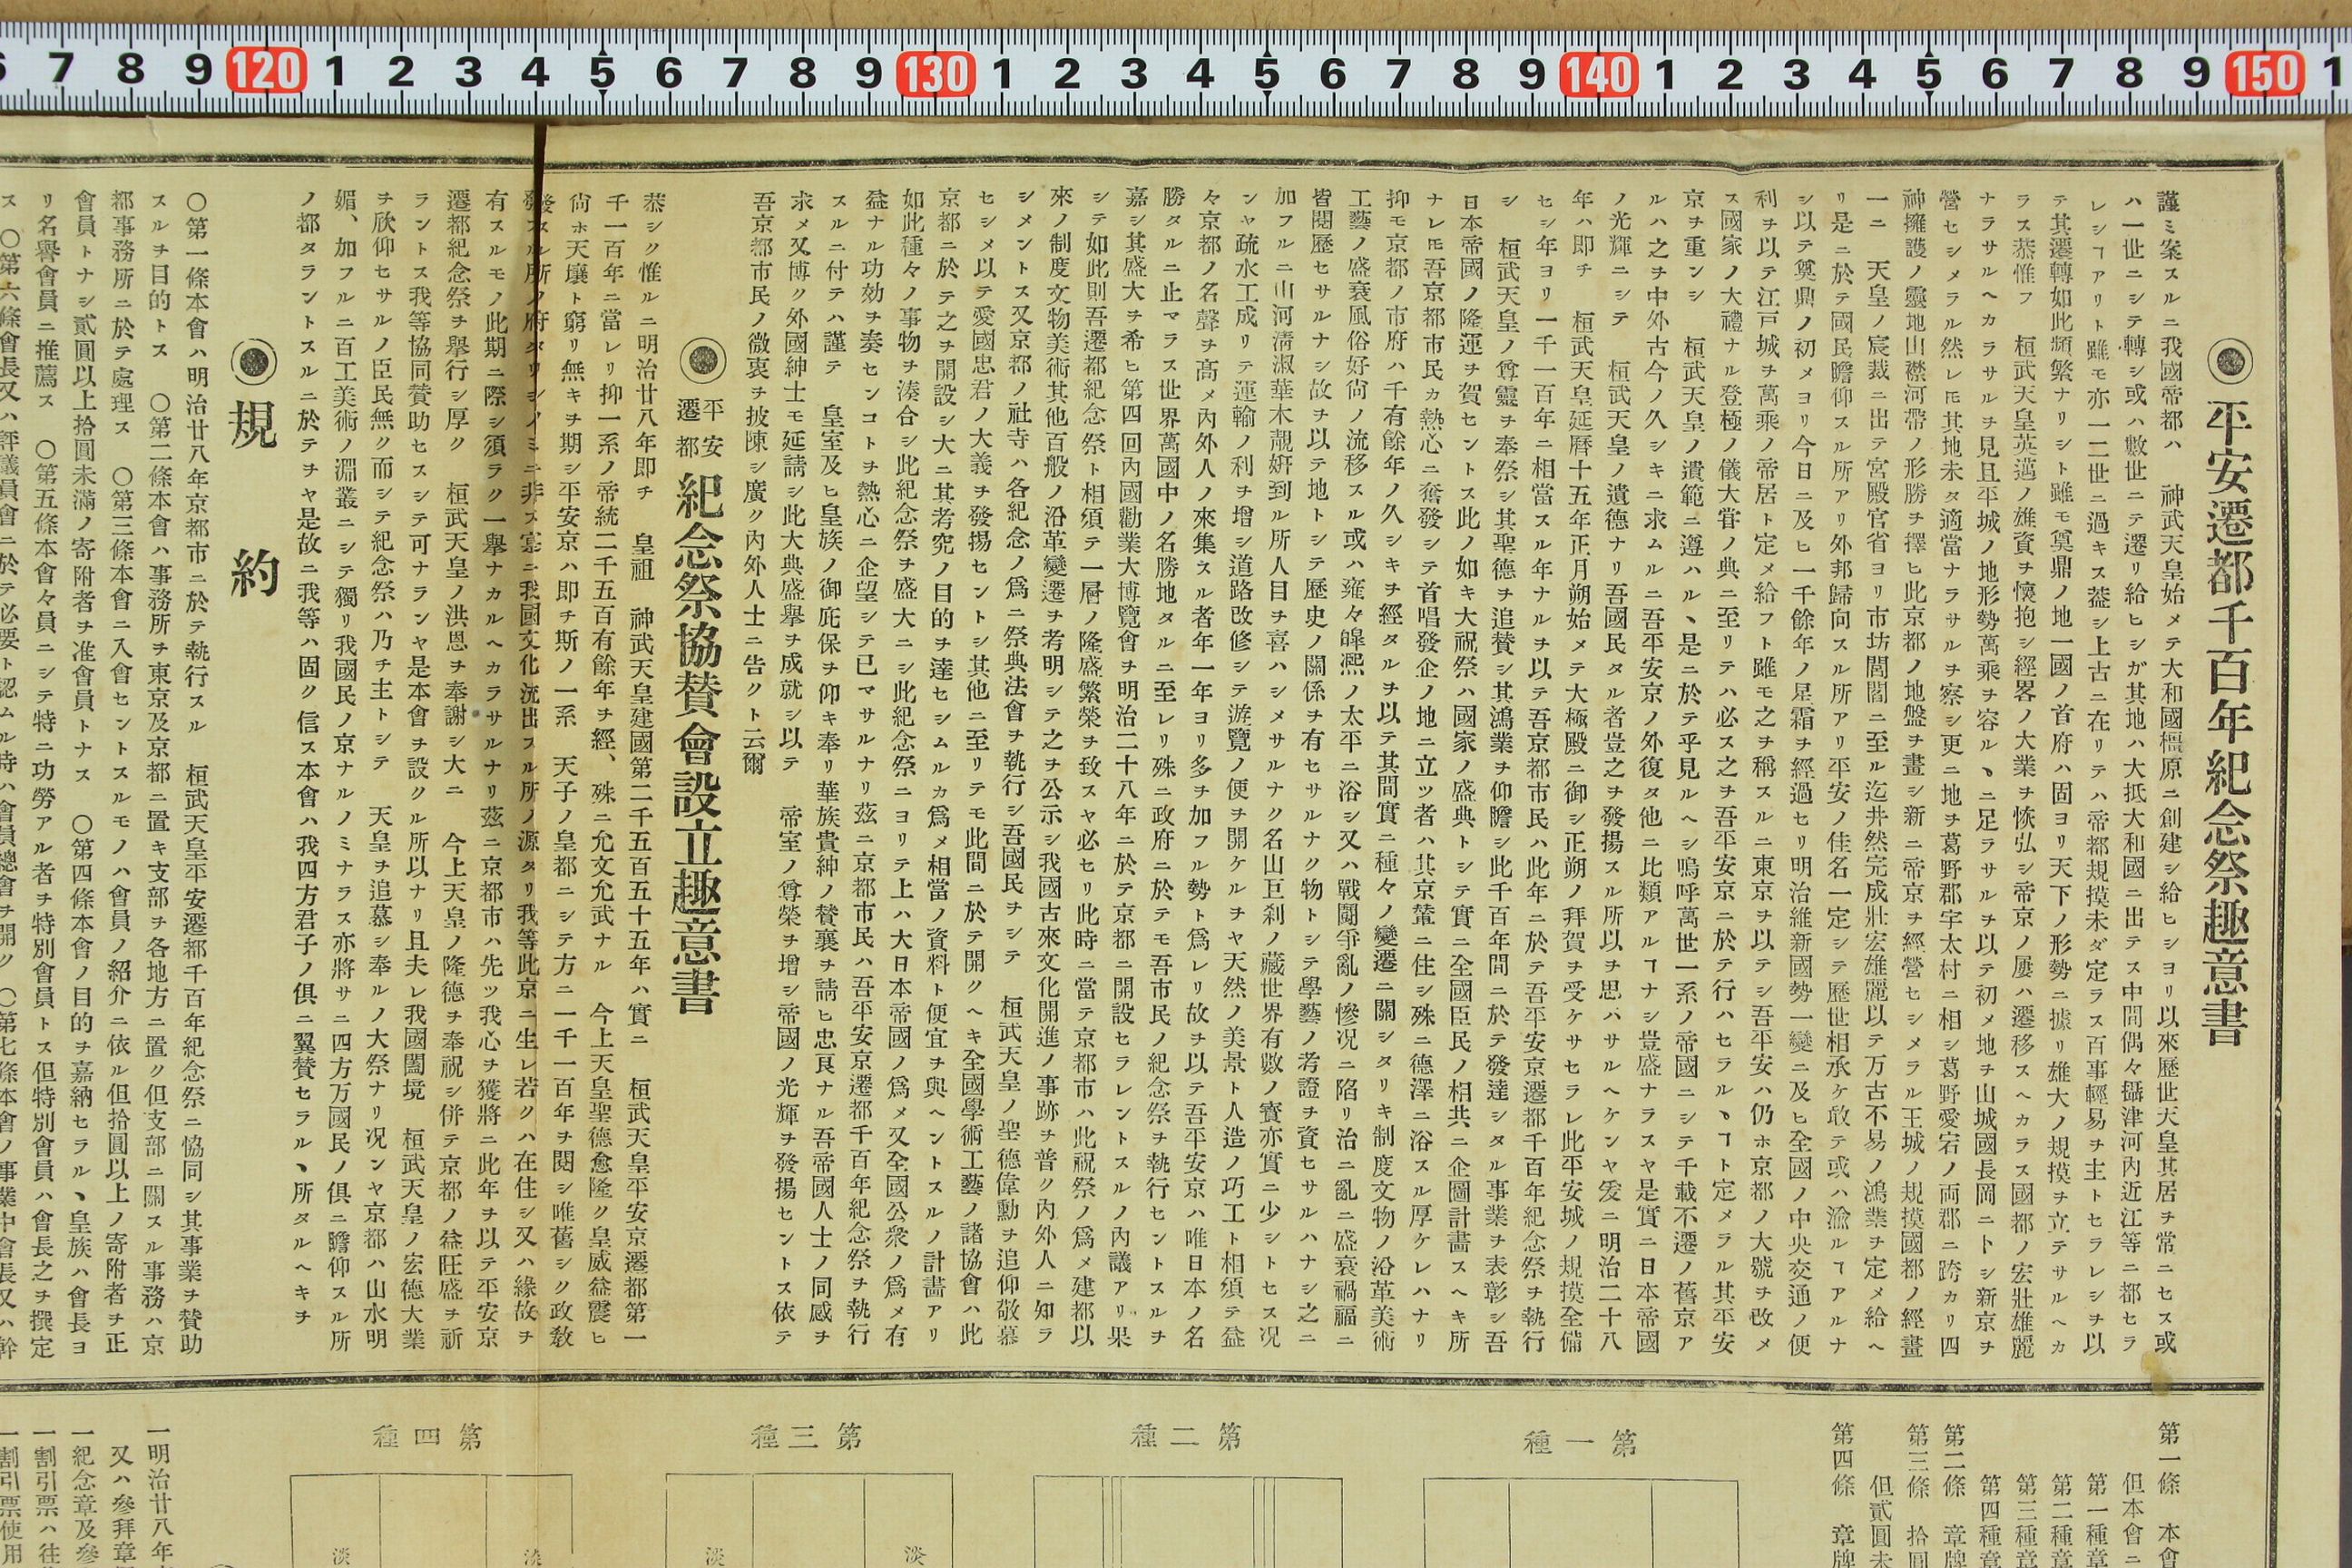 6 7 8 9 120 1 2 3 4 5 6 7 8 9 130 1 2 3 4 5 6 7 8 9 140 1 2 3 4 5 6 7 8 9 150 1
◉平安遷都千百年紀念祭趣意書
謹ミ案スルニ我國帝都ハ　神武天皇始メテ大和國橿原ニ創建シ給ヒシヨリ以來歷世天皇其居ヲ常ニセス或
ハ一世ニシテ轉シ或ハ數世ニテ遷リ給ヒシガ其地ハ大抵大和國ニ出テス中間偶々攝津河內近江等ニ都セラ
レシヿアリト雖モ亦一二世ニ過キス葢シ上古ニ在リテハ帝都規摸未ダ定ラス百事輕易ヲ主トセラレシヲ以
テ其遷轉如此頻繁ナリシト雖モ奠鼎ノ地一國ノ首府ハ固ヨリ天下ノ形勢ニ據リ雄大ノ規摸ヲ立テサルヘカ
ラス恭惟フ　桓武天皇英邁ノ雄資ヲ懷抱シ經畧ノ大業ヲ恢弘シ帝京ノ屢ハ遷移スヘカラス國都ノ宏壯雄麗
ナラサルヘカラサルヲ見且平城ノ地形勢萬乘ヲ容ルヽニ足ラサルヲ以テ初メ地ヲ山城國長岡ニトシ新京ヲ
營セシメラル然レ𪜈其地未タ適當ナラサルヲ察シ更ニ地ヲ葛野郡宇太村ニ相シ葛野愛宕ノ両郡ニ跨カリ四
神擁護ノ靈地山襟河帶ノ形勝ヲ擇ヒ此京都ノ地盤ヲ畫シ新ニ帝京ヲ經營セシメラル王城ノ規摸國都ノ經畫
一ニ　天皇ノ宸裁ニ出テ宮殿官省ヨリ市坊閭閻ニ至ル迄井然完成壯宏雄麗以テ万古不易ノ鴻業ヲ定メ給ヘ
リ是ニ於テ國民瞻仰スル所アリ外邦歸向スル所アリ平安ノ佳名一定シテ歷世相承ケ敢テ或ハ渝ルヿアルナ
シ以テ奠鼎ノ初メヨリ今日ニ及ヒ一千餘年ノ星霜ヲ經過セリ明治維新國勢一變ニ及ヒ全國ノ中央交通ノ便
利ヲ以テ江戸城ヲ萬乘ノ帝居ト定メ給フト雖モ之ヲ稱スルニ東京ヲ以テシ吾平安ハ仍ホ京都ノ大號ヲ改メ
ス國家ノ大禮ナル登極ノ儀大甞ノ典ニ至リテハ必ス之ヲ吾平安京ニ於テ行ハセラルヽヿト定メラル其平安
京ヲ重ンシ　桓武天皇ノ遺範ニ遵ハルヽ是ニ於テ乎見ルヘシ嗚呼萬世一系ノ帝國ニシテ千載不遷ノ舊京ア
ルハ之ヲ中外古今ノ久シキニ求ムルニ吾平安京ノ外復タ他ニ比類アルヿナシ豈盛ナラスヤ是實ニ日本帝國
ノ光輝ニシテ　桓武天皇ノ遺德ナリ吾國民タル者豈之ヲ發揚スル所以ヲ思バサルヘケンヤ爰ニ明治二十八
年ハ即チ　桓武天皇延曆十五年正月朔始メテ大極殿ニ御シ正朔ノ拜賀ヲ受ケサセラレ此平安城ノ規摸全備
セシ年ヨリ一千一百年ニ相當スル年ナルヲ以テ吾京都市民ハ此年ニ於テ吾平安京遷都千百年紀念祭ヲ執行
シ　桓武天皇ノ尊靈ヲ奉祭シ其聖德ヲ追賛シ其鴻業ヲ仰瞻シ此千百年間ニ於テ發達シタル事業ヲ表彰シ吾
日本帝國ノ隆運ヲ賀セントス此ノ如キ大祝祭ハ國家ノ盛典トシテ實ニ全國臣民ノ相共ニ企圖計畫スヘキ所
ナレ𪜈吾京都市民カ熱心ニ奮發シテ首唱發企ノ地ニ立ツ者ハ其京輦ニ住シ殊ニ德澤ニ浴スル厚ケレハナリ
抑モ京都ノ市府ハ千有餘年ノ久シキヲ經タルヲ以テ其間實ニ種々ノ變遷ニ關シタリキ制度文物ノ沿革美術
工藝ノ盛衰風俗好尙ノ流移スル或ハ雍々皥凞ノ太平ニ浴シ又ハ戰鬪爭亂ノ慘况ニ陷リ治ニ亂ニ盛衰禍福ニ
皆閱歷セサルナシ故ヲ以テ地トシテ歷史ノ關係ヲ有セサルナク物トシテ學藝ノ考證ヲ資セサルハナシ之ニ
加フルニ山河淸淑華木靚姸到ル所人目ヲ喜ハシメサルナク名山巨刹ノ藏世界有數ノ寶亦實ニ少シトセス况
ンヤ疏水工成リテ運輸ノ利ヲ增シ道路改修シテ游覽ノ便ヲ開ケルヲヤ天然ノ美景ト人造ノ巧工ト相須テ益
々京都ノ名聲ヲ高メ內外人ノ來集スル者年一年ヨリ多ヲ加フル勢ト爲レリ故ヲ以テ吾平安京ハ唯日本ノ名
勝タルニ止マラス世界萬國中ノ名勝地タルニ至レリ殊ニ政府ニ於テモ吾市民ノ紀念祭ヲ執行セントスルヲ
嘉シ其盛大ヲ希ヒ第四回內國勸業大博覽會ヲ明治二十八年ニ於テ京都ニ開設セラレントスルノ內議アリ果
シテ如此則吾遷都紀念祭ト相須テ一層ノ隆盛繁榮ヲ致スヤ必セリ此時ニ當テ京都市ハ此祝祭ノ爲メ建都以
來ノ制度文物美術其他百般ノ沿革變遷ヲ考明シテ之ヲ公示シ我國古來文化開進ノ事跡ヲ普ク內外人ニ知ラ
シメントス又京都ノ社寺ハ各紀念ノ爲ニ祭典法會ヲ執行シ吾國民ヲシテ　桓武天皇ノ聖德偉勳ヲ追仰敬慕
セシメ以テ愛國忠君ノ大義ヲ發揚セントシ其他ニ至リテモ此間ニ於テ開クヘキ全國學術工藝ノ諸協會ハ此
京都ニ於テ之ヲ開設シ大ニ其考究ノ目的ヲ達セシムルカ爲メ相當ノ資料ト便宜ヲ與ヘントスルノ計畵アリ
如此種々ノ事物ヲ湊合シ此紀念祭ヲ盛大ニシ此紀念祭ニヨリテ上ハ大日本帝國ノ爲メ又全國公衆ノ爲メ有
益ナル功効ヲ奏センコトヲ熱心ニ企望シテ已マサルナリ茲ニ京都市民ハ吾平安京遷都千百年紀念祭ヲ執行
スルニ付テハ謹テ　皇室及ヒ皇族ノ御庇保ヲ仰キ奉リ華族貴紳ノ賛襄ヲ請ヒ忠良ナル吾帝國人士ノ同感ヲ
求メ又博ク外國紳士モ延請シ此大典盛擧ヲ成就シ以テ　帝室ノ尊榮ヲ增シ帝國ノ光輝ヲ發揚セントス依テ
吾京都市民ノ微衷ヲ披陳シ廣ク內外人士ニ告クト云爾
◉平安遷都紀念祭協賛會設立趣意書
恭シク惟ルニ明治廿八年即チ　皇祖　神武天皇建國第二千五百五十五年ハ實ニ　桓武天皇平安京遷都第一
千一百年ニ當レリ抑一系ノ帝統二千五百有餘年ヲ經、殊ニ允文允武ナル　今上天皇聖德愈隆ク皇威益震ヒ
尙ホ天壤ト窮リ無キヲ期シ平安京ハ即チ斯ノ一系　天子ノ皇都ニシテ方ニ一千一百年ヲ閱シ唯舊シク政敎
發スル所ノ府タリシノミニ非ス寔ニ我國文化流出スル所ノ源タリ我等此京ニ生レ若クハ在住シ又ハ緣故ヲ
有スルモノ此期ニ際シ須ラク一擧ナカルヘカラサルナリ茲ニ京都市ハ先ツ我心ヲ獲將ニ此年ヲ以テ平安京
遷都紀念祭ヲ擧行シ厚ク　桓武天皇ノ洪恩ヲ奉謝シ大ニ　今上天皇ノ隆德ヲ奉祝シ併テ京都ノ益旺盛ヲ祈
ラントス我等協同賛助セスシテ可ナランヤ是本會ヲ設クル所以ナリ且夫レ我國闔境　桓武天皇ノ宏德大業
ヲ欣仰セサルノ臣民無ク而シテ紀念祭ハ乃チ主トシテ　天皇ヲ追慕シ奉ルノ大祭ナリ况ンヤ京都ハ山水明
媚、加フルニ百工美術ノ淵叢ニシテ獨リ我國民ノ京ナルノミナラス亦將サニ四方万國民ノ俱ニ瞻仰スル所
ノ都タラントスルニ於テヲヤ是故ニ我等ハ固ク信ス本會ハ我四方君子ノ俱ニ翼賛セラルヽ所タルヘキヲ
◉規約
〇第一條本會ハ明治廿八年京都市ニ於テ執行スル　桓武天皇平安遷都千百年紀念祭ニ恊同シ其事業ヲ賛助
スルヲ目的トス　〇第二條本會ハ事務所ヲ東京及京都ニ置キ支部ヲ各地方ニ置ク但支部ニ關スル事務ハ京
都事務所ニ於テ處理ス　〇第三條本會ニ入會セントスルモノハ會員ノ紹介ニ依ル但拾圓以上ノ寄附者ヲ正
會員トナシ貳圓以上拾圓未滿ノ寄附者ヲ准會員トナス　〇第四條本會ノ目的ヲ嘉納セラルヽ皇族ハ會長ヨ
リ名譽會員ニ推薦ス　〇第五條本會々員ニシテ特ニ功勞アル者ヲ特別會員トス但特別會員ハ會長之ヲ撰定
ス　〇第六條會長又ハ評議員會ニ於テ必要ト認ムル時ハ會員總會ヲ開ク　〇第七條本會ノ事業中會長又ハ幹
第一條　本會
但本會ニ
第一種章
第二種章
第三種章
第四種章
第二條　章牌
第三條　拾圓
但貳圓未
第四條　章牌
第一種
第二種
第三種
淡
淡
第四種
淡
淡
一明治廿八年
又ハ參拜章
一紀念章及參
一割引票ハ往
一割引票使用